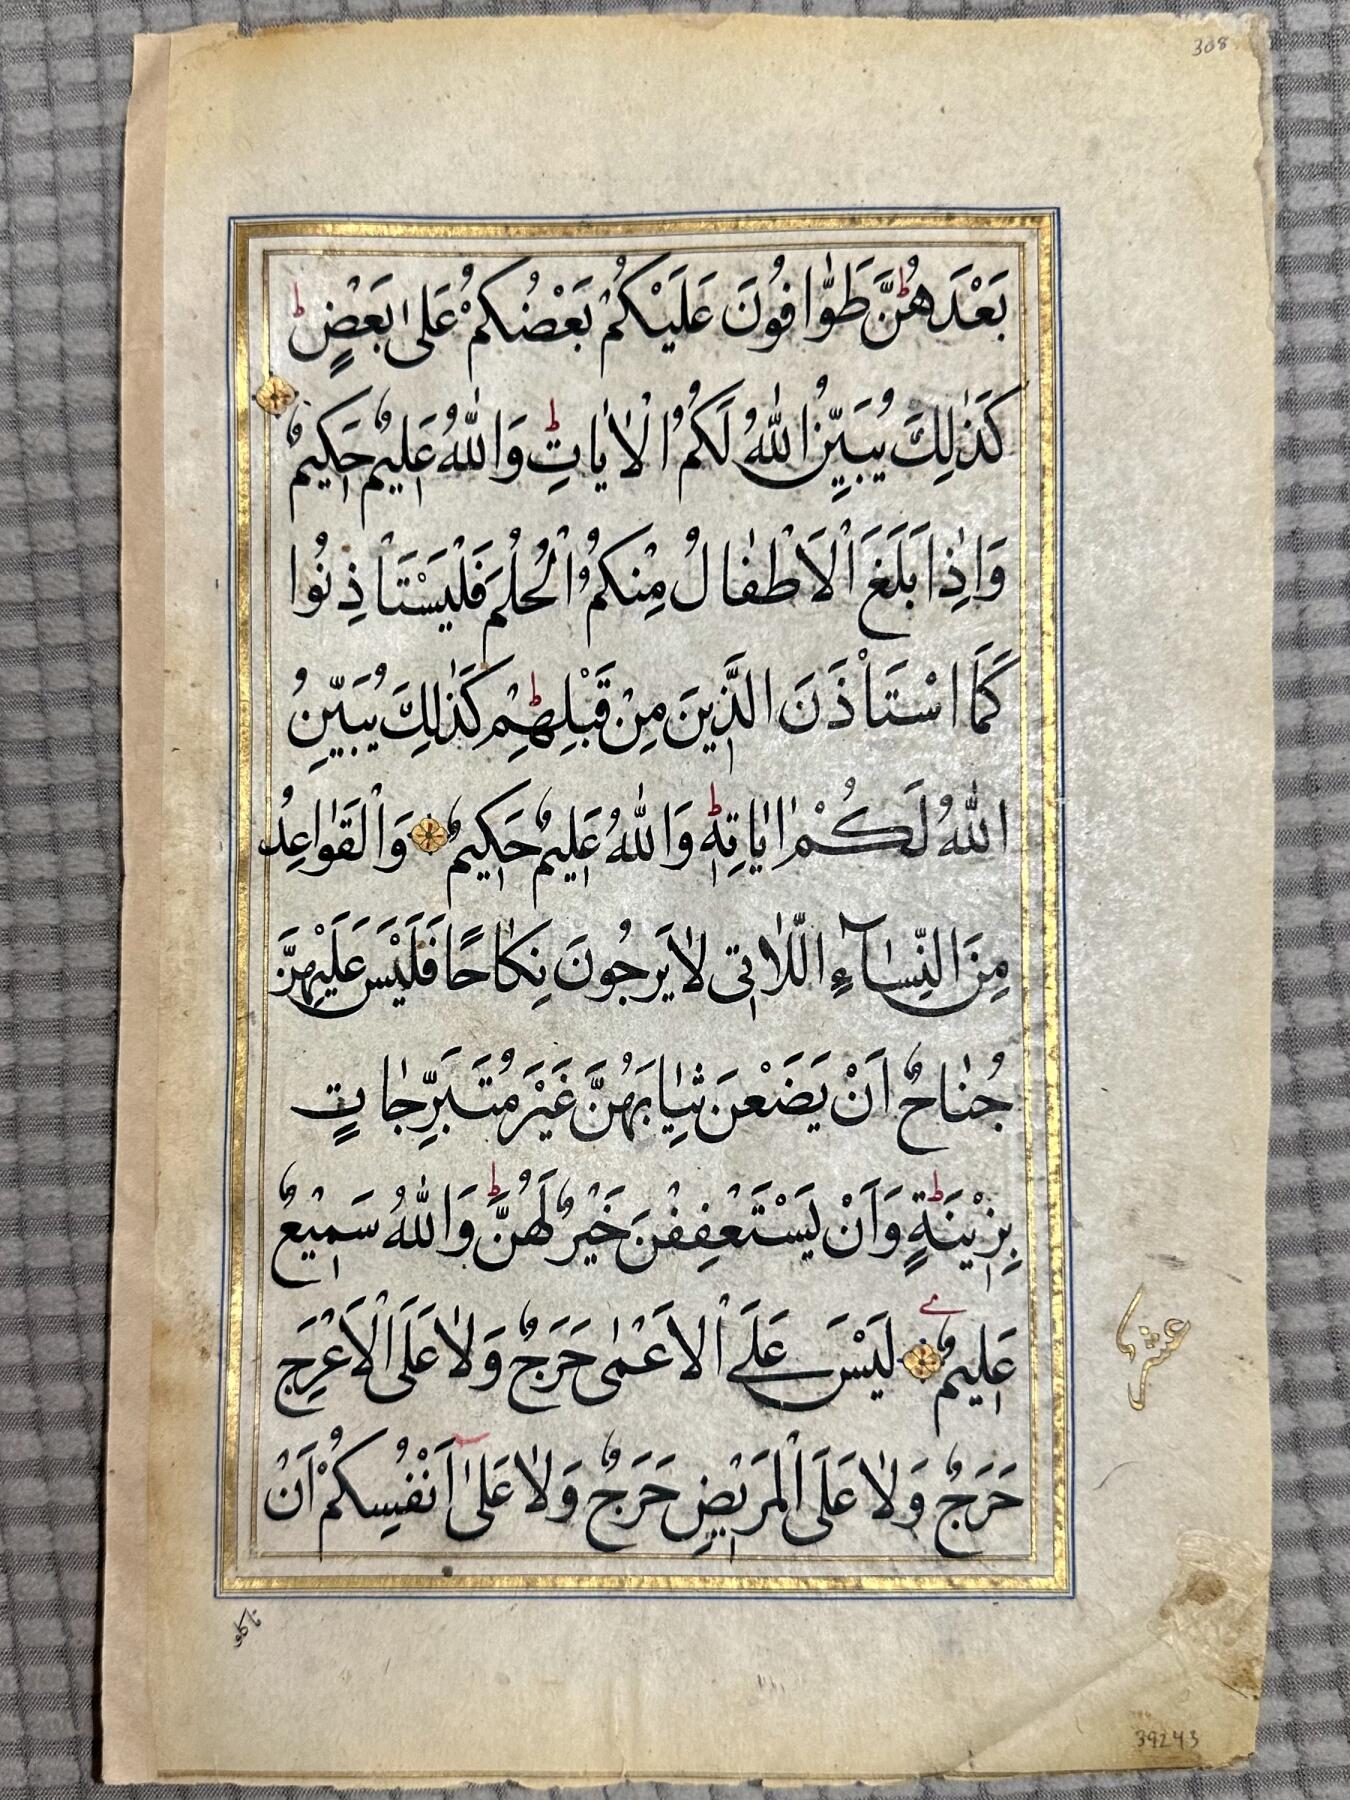 308
بَعْدَهُنَّ ط طَوّٰافُونَ عَلَيْكُمْ بَعْضُكُمْ عَلىٰ بَعْضٍ ط
كَذٰلِكَ يُبَيِّنُ اللّٰهُ لَكُمُ الْاٰيٰاتِ ط وَاللّٰهُ عَلِيمٌ حَكِيمٌ
وَاِذٰا بَلَغَ الْاَطْفٰالُ مِنْكُمُ الْحُلُمَ فَلْيَسْتَاْذِنُوا
كَمَا اسْتَاْذَنَ الَّذِينَ مِنْ قَبْلِهِمْ ط كَذٰلِكَ يُبَيِّنُ
اللّٰهُ لَكُمْ اٰيٰاتِهٖ ط وَاللّٰهُ عَلِيمٌ حَكِيمٌ وَالْقَوٰاعِدُ
مِنَ النِّسٰٓاءِ اللّٰاتِى لٰا يَرْجُونَ نِكٰاحًا فَلَيْسَ عَلَيْهِنَّ
جُنٰاحٌ اَنْ يَضَعْنَ ثِيٰابَهُنَّ غَيْرَ مُتَبَرِّجٰاتٍ
بِزِيْنَةٍ ط وَاَنْ يَسْتَعْفِفْنَ خَيْرٌ لَهُنَّ ط وَاللّٰهُ سَمِيْعٌ
عَلِيمٌ لَيْسَ عَلَى الْاَعْمٰى حَرَجٌ وَلٰا عَلَى الْاَعْرَجِ
حَرَجٌ وَلٰا عَلَى الْمَرِيْضِ حَرَجٌ وَلٰا عَلىٰٓ اَنْفُسِكُمْ اَنْ
عشر
تاكلو
39243